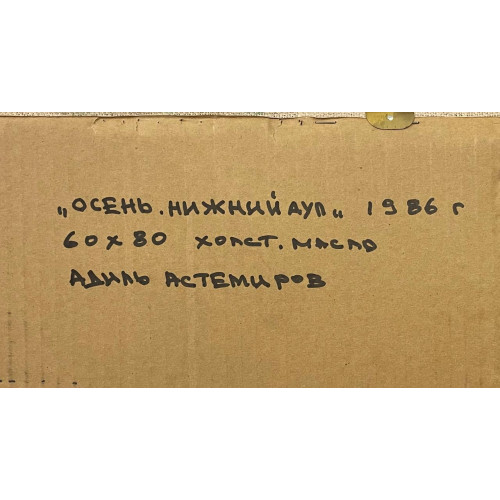 „ОСЕНЬ. НИЖНИЙ АУЛ„ 1986 г
60 х 80 ХОЛСТ. МАСЛО
АДИЛЬ АСТЕМИРОВ